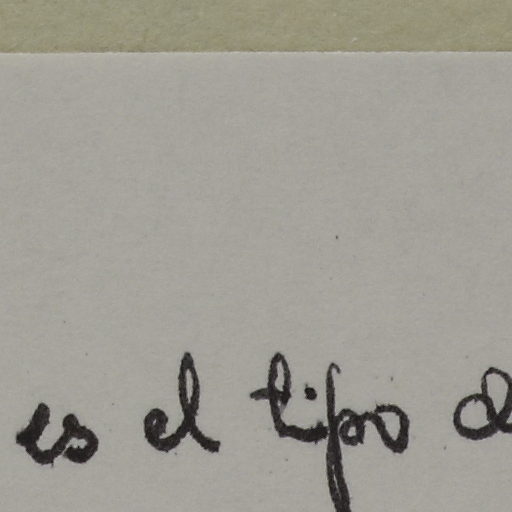 es el tipo d